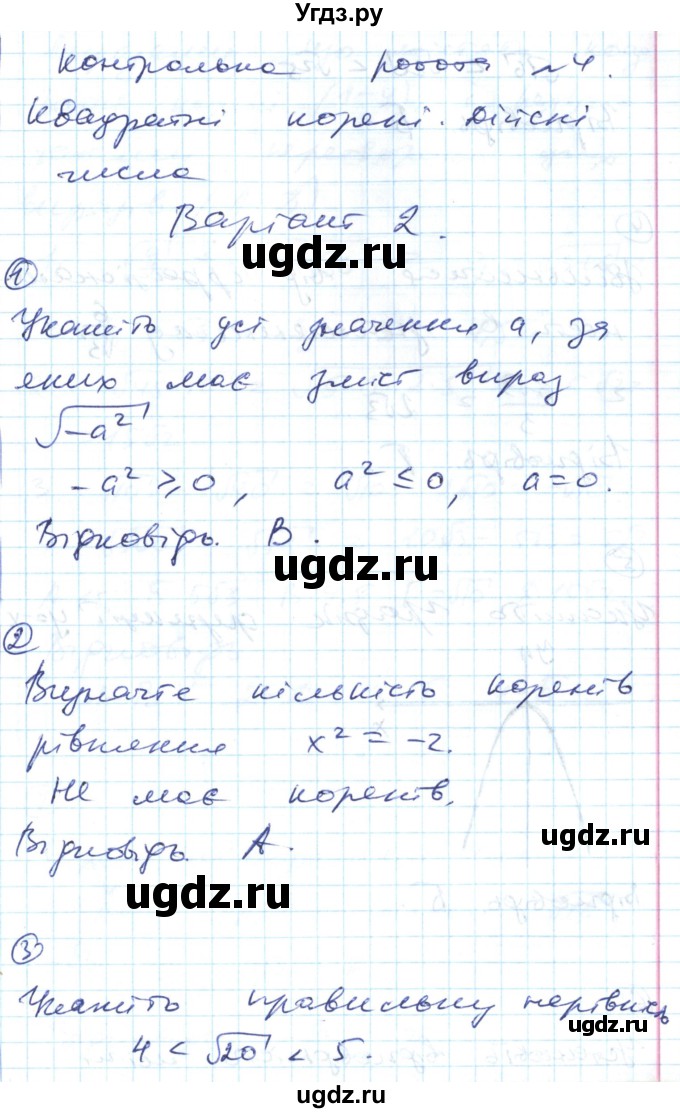 Угдз.ру
Контрольна робота №4.
Квадратні корені. Дійсні
числа
Варіант 2.
ugdz.ru
1
Укажіть усі значення a, за
яких має зміст вираз
√-a²
-a² ⩾ 0, a² ≤ 0, a=0.
ugdz.ru
Відповідь. В.
2
Визначте кількість коренів
рівняння x² = -2.
ugdz.ru
Не має коренів.
ugdz.ru
Відповідь А.
ugdz.ru
3
Укажіть правильну нерівність
ugdz.ru
4 < √20 < 5.
ugdz.ru